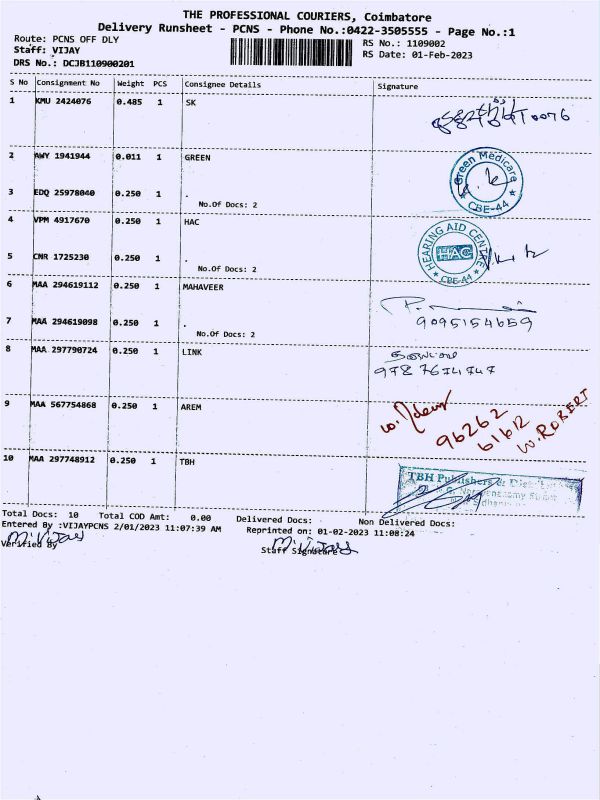 THE PROFESSIONAL COURIERS, Coimbatore
Delivery Runsheet - PCNS - Phone No.:0422-3505555 - Page No.:1
Route: PCNS OFF DLY
RS No.: 1109002
Staff: VIJAY
RS Date: 01-Feb-2023
DRS No.: DCJB110900201
S No Consignment No Weight PCS Consignee Details Signature
1 KMU 2424076 0.485 1 SK
2 AWY 1941944 0.011 1 GREEN
Green Medicare
CBE-44
3 EDQ 25978040 0.250 1 .
No.Of Docs: 2
4 VPM 4917670 0.250 1 HAC
HEARING AID CENTRE
HAC
CBE-44
5 CNR 1725230 0.250 1 .
No.Of Docs: 2
6 MAA 294619112 0.250 1 MAHAVEER
7 MAA 294619098 0.250 1 .
9095154659
No.Of Docs: 2
8 MAA 297790724 0.250 1 LINK
9 MAA 567754868 0.250 1 AREM
96262
61612
W.ROBERT
10 MAA 297748912 0.250 1 TBH
TBH Publishers &
Total Docs: 10 Total COD Amt: 0.00 Delivered Docs: Non Delivered Docs:
Entered By :VIJAYPCNS 2/01/2023 11:07:39 AM Reprinted on: 01-02-2023 11:08:24
M.Vijay M.Vijay
Verified By Staff Signature